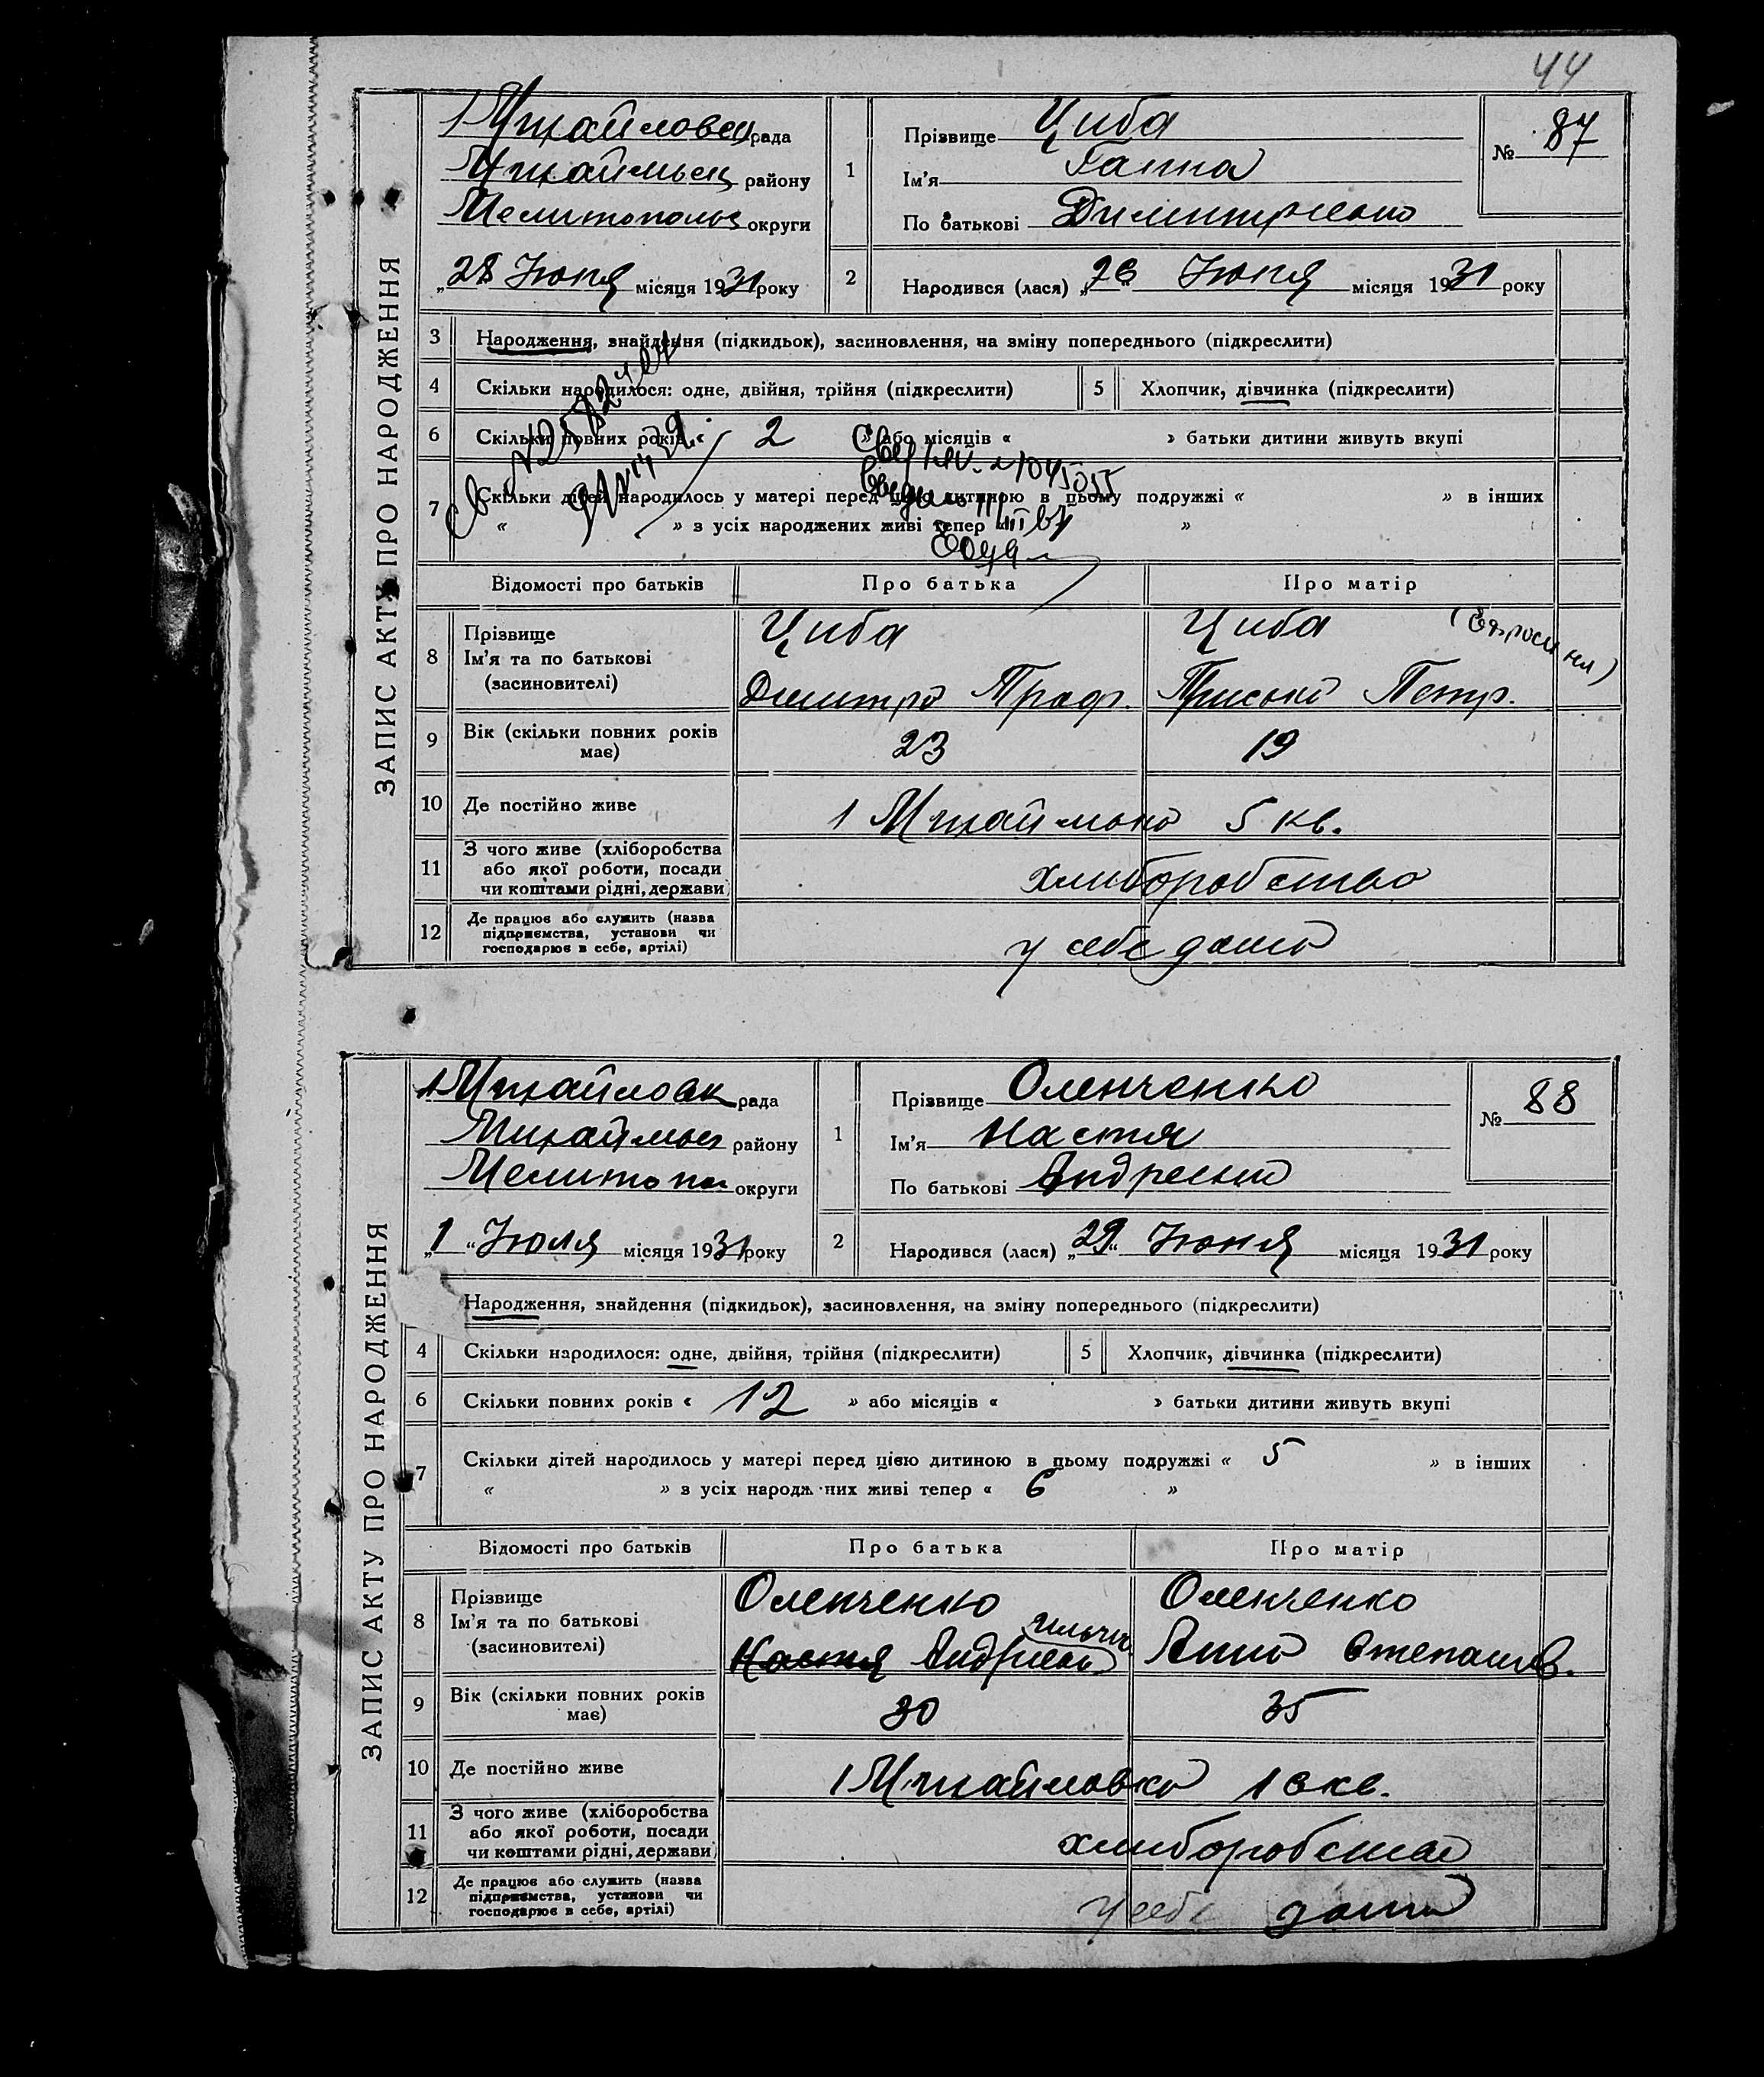 44
ЗАПИС АКТУ ПРО НАРОДЖЕННЯ
рада
району
округи
„28 Июня місяця 1931 року
1
Прізвище Циба
Ім'я Ганна
По батькові
№ 87
2
Народився (лася) „26 Июня місяця 1931 року
3 Народження, знайдення (підкидьок), засиновлення, на зміну попереднього (підкреслити)
4 Скільки народилося: одне, двійня, трійня (підкреслити)
5 Хлопчик, дівчинка (підкреслити)
6 Скільки повних років « 2 » або місяців « » батьки дитини живуть вкупі
7 Скільки дітей народилось у матері перед цією дитиною в цьому подружжі « » в інших
« » з усіх народжених живі тепер « »
Відомості про батьків Про батька Про матір
8 Прізвище
Ім'я та по батькові
(засиновителі)
Циба
Дмитро Троф.
Циба
Петр.
9 Вік (скільки повних років має) 23 19
10 Де постійно живе 1 5 кв.
11 З чого живе (хліборобства
або якої роботи, посади
чи коштами рідні, держави)
хлиборобство
12 Де працює або служить (назва
підприємства, установи чи
господарює в себе, артілі)
у себе дома
ЗАПИС АКТУ ПРО НАРОДЖЕННЯ
1 Михайловск рада
району
округи
„1“ Июля місяця 1931 року
1
Прізвище Оленченко
Ім'я Настя
По батькові
№ 88
2
Народився (лася) „29“ Июня місяця 1931 року
Народження, знайдення (підкидьок), засиновлення, на зміну попереднього (підкреслити)
4 Скільки народилося: одне, двійня, трійня (підкреслити)
5 Хлопчик, дівчинка (підкреслити)
6 Скільки повних років « 12 » або місяців « » батьки дитини живуть вкупі
7 Скільки дітей народилось у матері перед цією дитиною в цьому подружжі « 5 » в інших
« » з усіх народж них живі тепер « 6 »
Відомості про батьків Про батька Про матір
8 Прізвище
Ім'я та по батькові
(засиновителі)
Оленченко
Настя
Оленченко
Анна Степанов.
9 Вік (скільки повних років має) 30 35
10 Де постійно живе 1 Михайловка кв.
11 З чого живе (хліборобства
або якої роботи, посади
чи коштами рідні, держави)
хлиборобства
12 Де працює або служить (назва
підприємства, установи чи
господарює в себе, артілі)
у себе дома